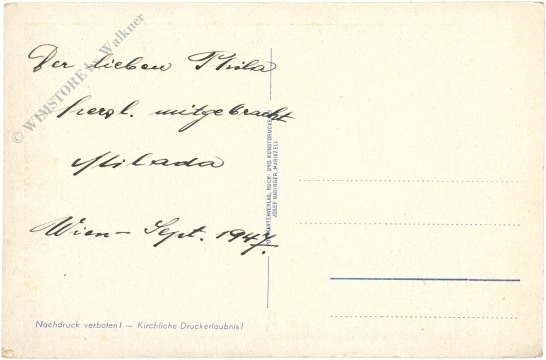 Der lieben Thila
herzl. mitgebracht
Milada
Wien – Sept. 1947.
POSTKARTENVERLAG, BUCH- UND KUNSTDRUCKEREI
JOSEF RADINGER, MARIAZELL
Nachdruck verboten! — Kirchliche Druckerlaubnis!
© WIMSTORE by Walkner